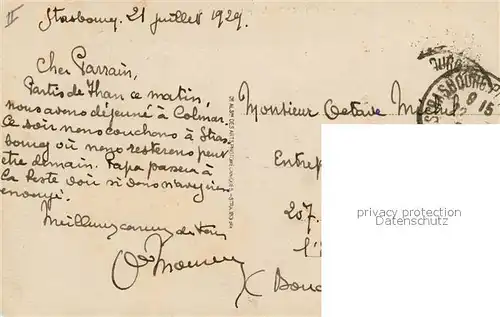 II
Strasbourg. 21 juillet 1929.
Cher Parrain,
Partis de Than ce matin,
nous avons déjeuné à Colmar.
Ce soir nous couchons à Stras
bourg où nous resterons peut
être demain. Papa passera à
la Poste voir si vous n'avez rien
envoyé.
Meilleurs de tous
Monsieur Octave
Entrep
207.
(Bouc
STRASBOURG
8 15
privacy protection
Datenschutz